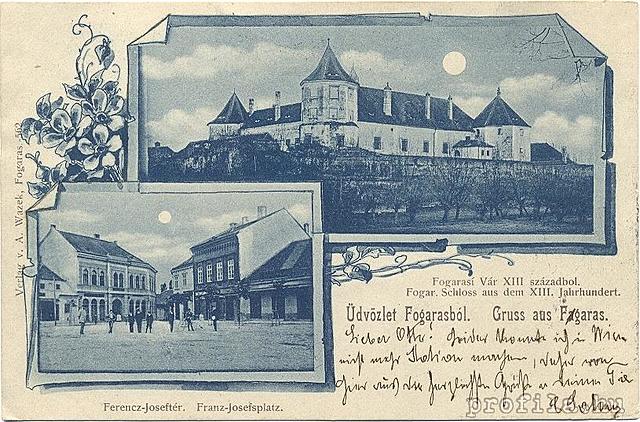 Verlag v. A. Wazek, Fogaras.
Fogarasi Vár XIII században.
Fogar. Schloss aus dem XIII. Jahrhundert.
Üdvözlet Fogarasból. Gruss aus Fogaras.
Lieber Otto! Leider konnte ich in Wien
nicht mehr Station machen, daher von
hier aus die herzlichsten Grüße u
Ferencz-Joseftér. Franz-Josefsplatz.
profila.hu